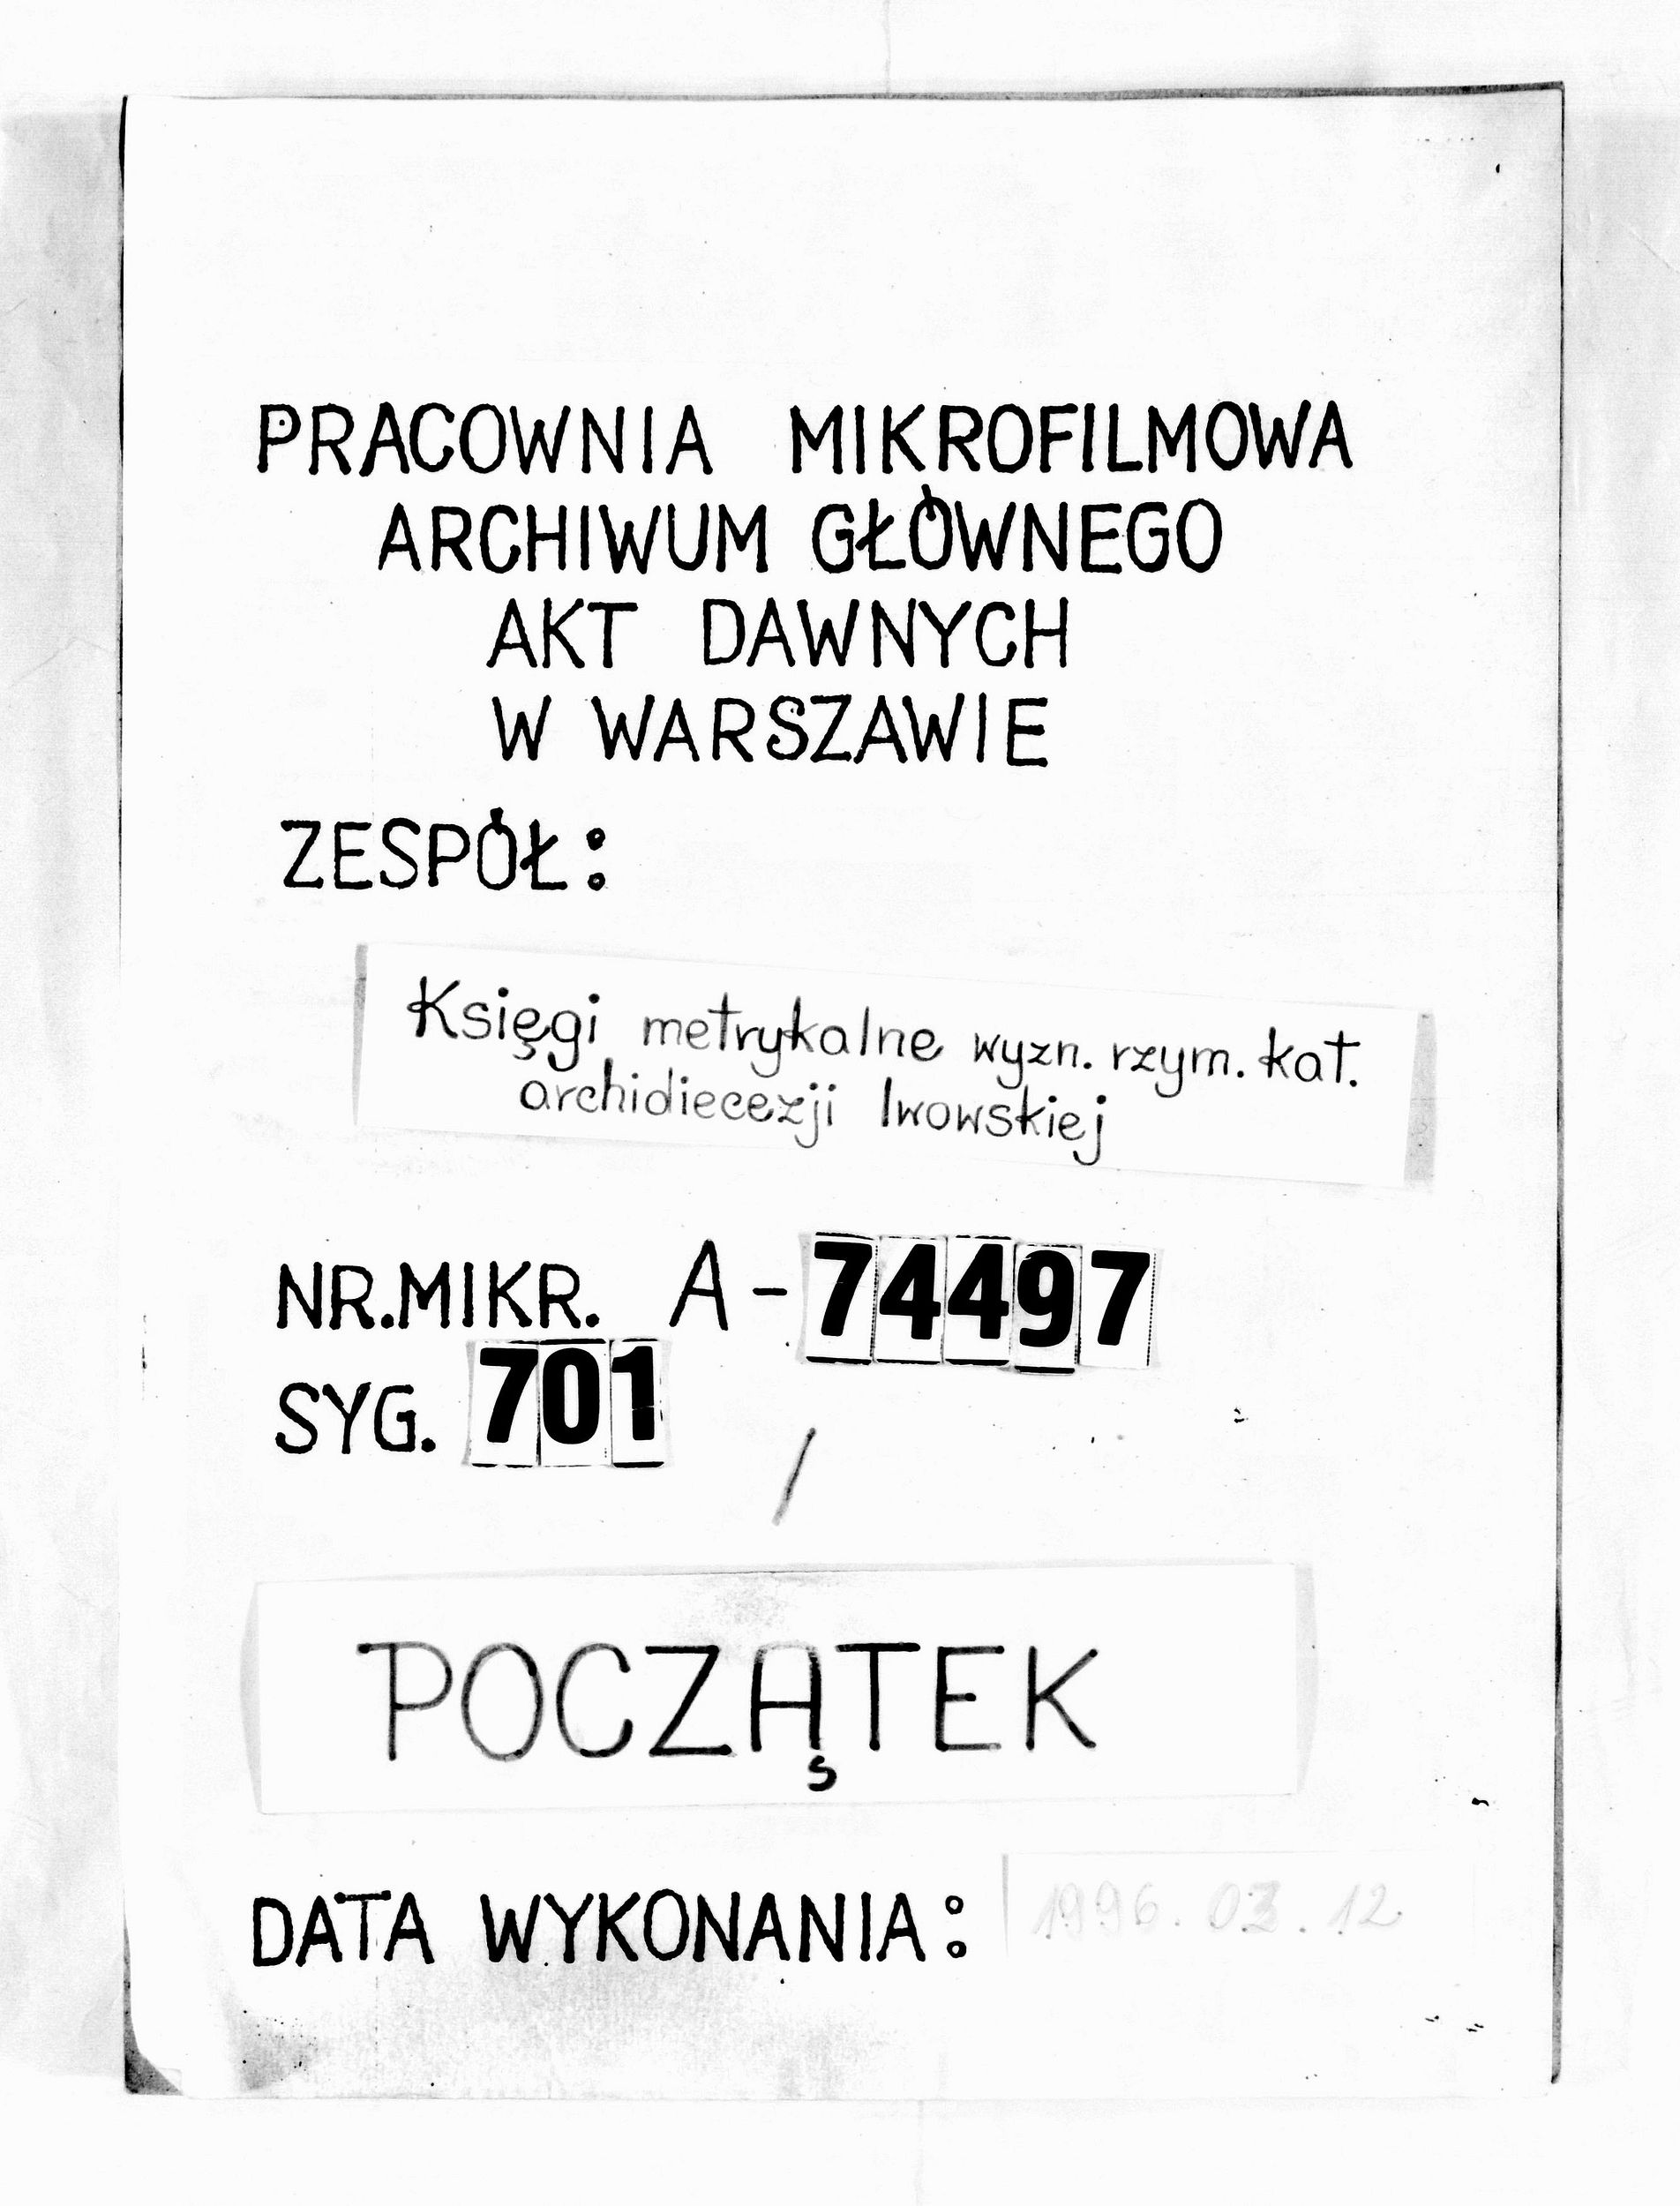 PRACOWNIA MIKROFILMOWA
ARCHIWUM GŁÓWNEGO
AKT DAWNYCH
W WARSZAWIE
ZESPÓŁ:
Księgi metrykalne wyzn. rzym. kat.
archidiecezji lwowskiej
NR.MIKR. A-74497
SYG. 701
/
POCZĄTEK
DATA WYKONANIA: 1996. 03. 12.